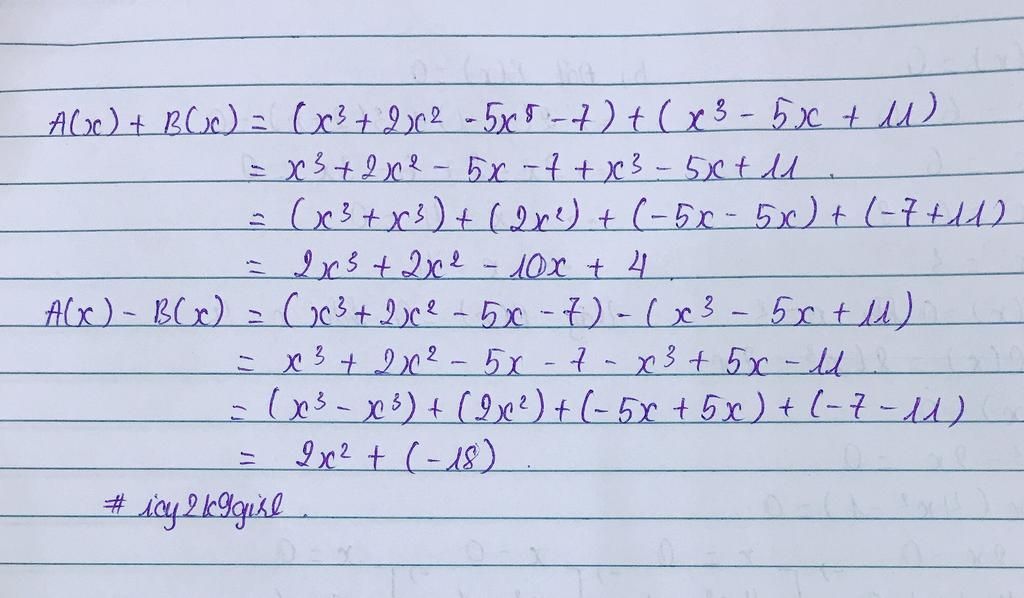 A(x) + B(x) = (x³ + 2x² - 5x⁵ - 7) + (x³ - 5x + 11)
= x³ + 2x² - 5x - 7 + x³ - 5x + 11.
= (x³ + x³) + (2x²) + (-5x - 5x) + (-7 + 11)
= 2x³ + 2x² - 10x + 4.
A(x) - B(x) = (x³ + 2x² - 5x - 7) - (x³ - 5x + 11)
= x³ + 2x² - 5x - 7 - x³ + 5x - 11.
= (x³ - x³) + (2x²) + (-5x + 5x) + (-7 - 11)
= 2x² + (-18).
# icy2k9girl.